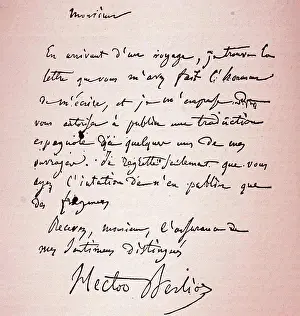 Monsieur
En arrivant d'un voyage, je trouve la
lettre que vous m'avez fait l'honneur
de m'écrire, et je m'empresse de
vous autoriser à publier une traduction
espagnole de quelques uns de mes
ouvrages. Je regrette seulement que vous
ayez l'intention de n'en publier que
des fragments
Recevez, monsieur, l'assurance de
mes sentiments distingués
Hector Berlioz